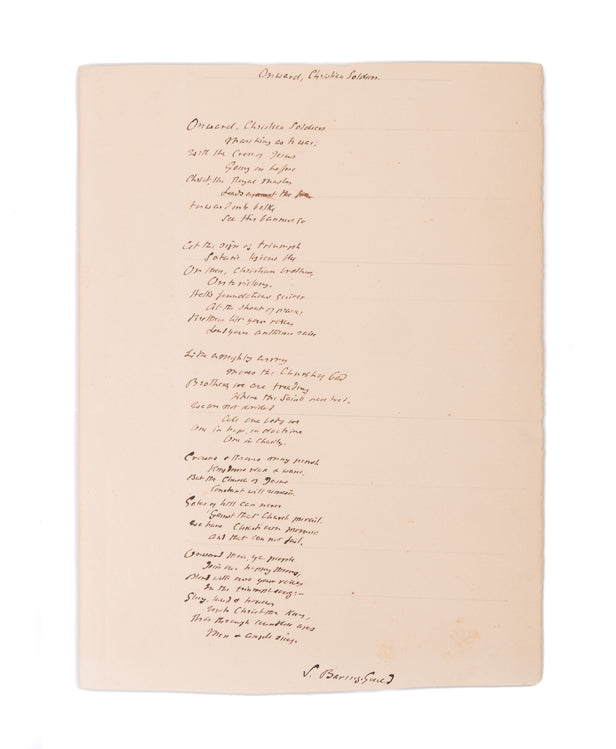 Onward, Christian Soldiers.
Onward, Christian Soldiers
Marching as to war;
With the Cross of Jesus
Going on before
Christ, the Royal Master
Leads against the foe
Forward into battle,
See His banners go
At the sign of triumph
Satan's legions flee
On then, Christian brothers,
On to victory.
Hell's foundations quiver
At the shout of praise;
Brothers lift your voices
Loud your anthems raise
Like a mighty army
Moves the Church of God
Brothers, we are treading
Where the Saints have trod.
We are not divided
All one body we
One in hope, in doctrine
One in Charity.
Crowns & thrones may perish
Kingdoms wax & wane.
But the Church of Jesus
Constant will remain.
Gates of hell can never
Gainst that Church prevail.
We have Christ's own promise
and that can not fail.
Onward then, ye people
Join our happy throng,
Blend with ours your voices
In the triumph song:—
Glory, laud & honour
Unto Christ the King,
This through countless ages
Men & angels sing.
S. Baring-Gould